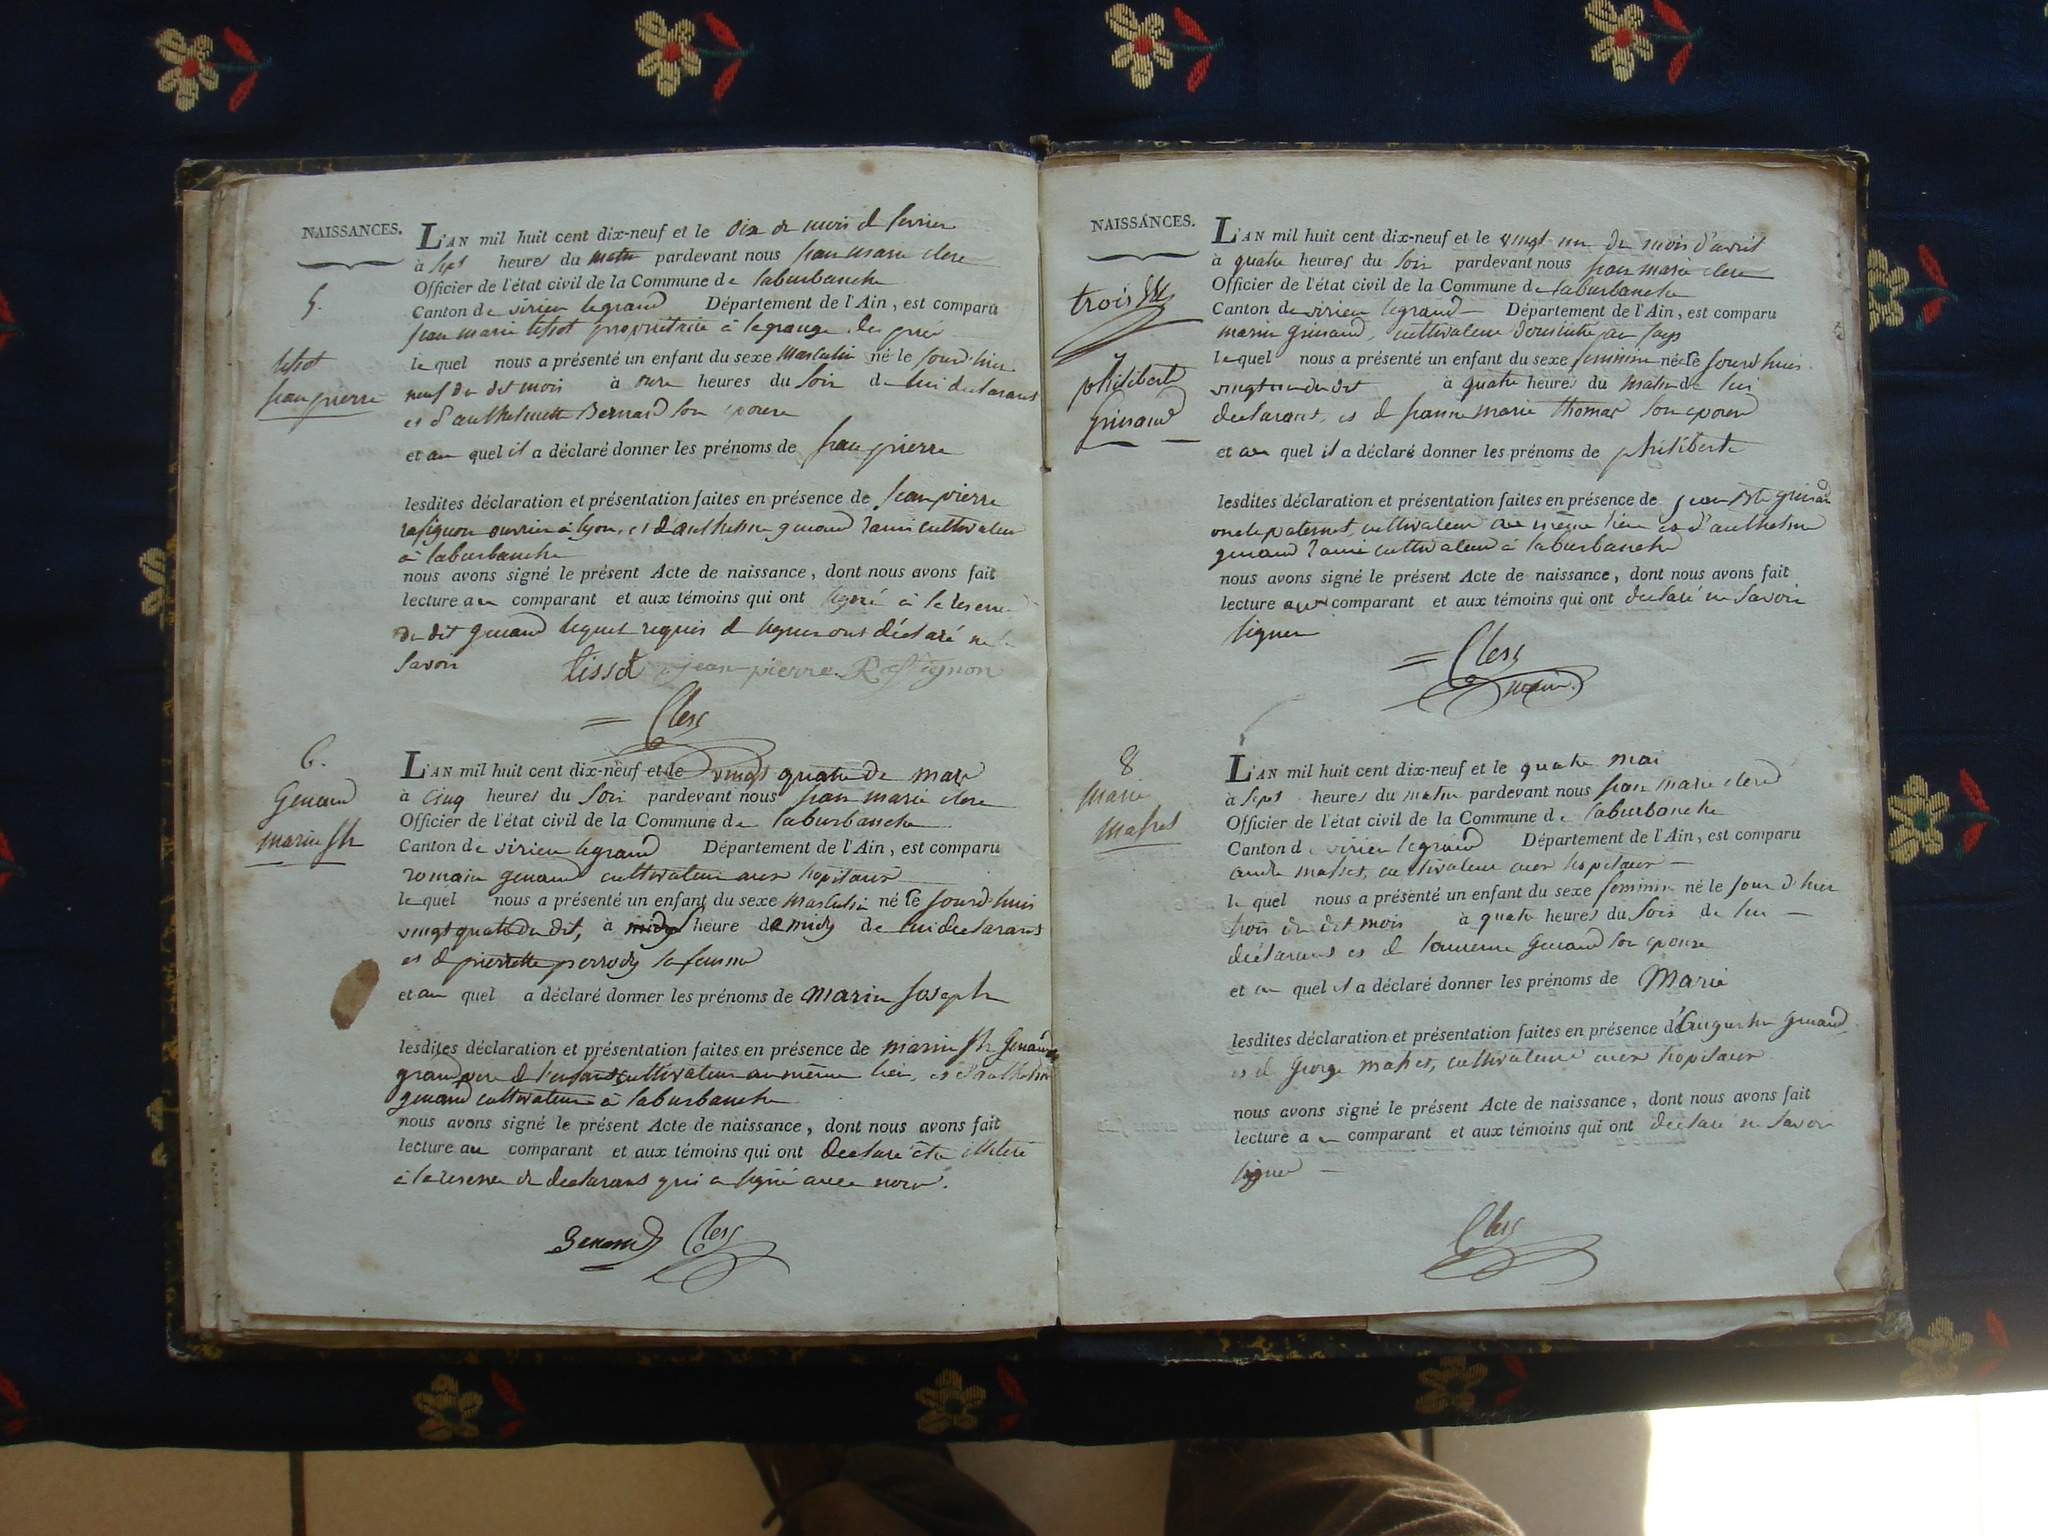 NAISSANCES.
5.
tissot
jean pierre
L'AN mil huit cent dix-neuf et le dix du mois de fevrier
à sept heures du matin pardevant nous jean marie clerc
Officier de l'état civil de la Commune de laburbanche
Canton de virieu legrand Département de l'Ain, est comparu
jean marie tissot propriétaire à lagrange du
le quel nous a présenté un enfant du sexe Masculin né le jourd'hier
neuf du dit mois à onze heures du soir de lui declarant
et d'anthelmette Bernard son epouse
et au quel il a déclaré donner les prénoms de jean pierre
lesdites déclaration et présentation faites en présence de jean pierre
rossignon ouvrier à lyon, et d'anthelme genand l'ainé cultivateur
à laburbanche
nous avons signé le présent Acte de naissance, dont nous avons fait
lecture au comparant et aux témoins qui ont signé à la reserve
du dit genand lequel requis de signer ont déclaré ne
savoir tissot jean-pierre Rossignon
Clerc
6.
Genand
marin jh
L'AN mil huit cent dix-neuf et le vingt quatre de mars
à cinq heures du soir pardevant nous jean marie clerc
Officier de l'état civil de la Commune de laburbanche
Canton de virieu legrand Département de l'Ain, est comparu
romain genand cultivateur aux hopitaux
le quel nous a présenté un enfant du sexe Masculin né le jourd'huis
vingt quatre du dit, à midy heure de midy de lui declarant
et de pierrette perrody sa femme
et au quel a déclaré donner les prénoms de marin joseph
lesdites déclaration et présentation faites en présence de marin jh Genand
grand pere de l'enfant cultivateur au même lieu, et d'anthelme
genand cultivateur à laburbanche
nous avons signé le présent Acte de naissance, dont nous avons fait
lecture au comparant et aux témoins qui ont declaré être illiteré
à la reserve du declarant qui a signé avec nous.
Genand Clerc
NAISSANCES.
trois
7
philiberte
grinand
L'AN mil huit cent dix-neuf et le vingt un du mois d'avril
à quatre heures du soir pardevant nous jean marie clerc
Officier de l'état civil de la Commune de laburbanche
Canton de virieu legrand Département de l'Ain, est comparu
marin grinand, cultivateur domicilié
le quel nous a présenté un enfant du sexe feminin né le jourd'huis
vingt un du dit à quatre heures du matin de lui
declarant, et de jeanne marie thomas son epouse
et au quel il a déclaré donner les prénoms de philiberte
lesdites déclaration et présentation faites en présence de jean Bte grinand
oncle paternel, cultivateur au même lieu et d'anthelme
genand l'ainé cultivateur à laburbanche
nous avons signé le présent Acte de naissance, dont nous avons fait
lecture aux comparant et aux témoins qui ont declaré ne savoir
signer
Clerc
8
Marie
Masset
L'AN mil huit cent dix-neuf et le quatre mai
à sept heures du matin pardevant nous jean marie clerc
Officier de l'état civil de la Commune de laburbanche
Canton de virieu legrand Département de l'Ain, est comparu
masset, cultivateur aux hopitaux
le quel nous a présenté un enfant du sexe feminin né le jour d'hier
trois du dit mois à quatre heures du soir de lui
déclarant et de laurence Genand son epouse
et au quel il a déclaré donner les prénoms de Marie
lesdites déclaration et présentation faites en présence d'augustin genand
et de george masset, cultivateurs aux hopitaux
nous avons signé le présent Acte de naissance, dont nous avons fait
lecture au comparant et aux témoins qui ont declaré ne savoir
signer
Clerc